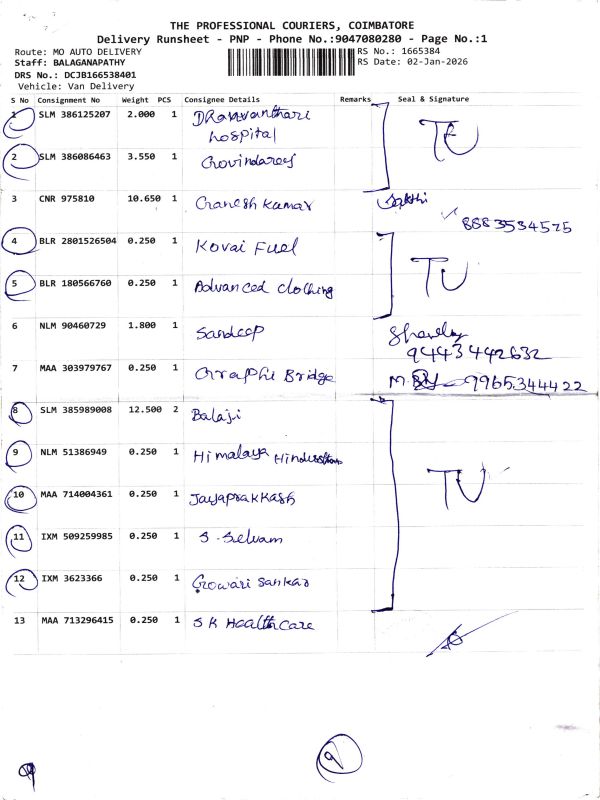 THE PROFESSIONAL COURIERS, COIMBATORE
Delivery Runsheet - PNP - Phone No.:9047080280 - Page No.:1
Route: MO AUTO DELIVERY RS No.: 1665384
Staff: BALAGANAPATHY RS Date: 02-Jan-2026
DRS No.: DCJB166538401
Vehicle: Van Delivery
S No Consignment No Weight PCS Consignee Details Remarks Seal & Signature
1 SLM 386125207 2.000 1
hospital TU
2 SLM 386086463 3.550 1 Govindaraj
3 CNR 975810 10.650 1 Ganesh kumar Sakthi
8883534575
4 BLR 2801526504 0.250 1 Kovai Fuel
5 BLR 180566760 0.250 1 Advanced clothing TU
6 NLM 90460729 1.800 1 Sandeep
9443442632
7 MAA 303979767 0.250 1 Graphi Bridge 9965344422
8 SLM 385989008 12.500 2 Balaji
9 NLM 51386949 0.250 1 Himalaya
TU
10 MAA 714004361 0.250 1 Jayaprakkash
11 IXM 509259985 0.250 1 S. Selvam
12 IXM 3623366 0.250 1 Gowari Sankar
13 MAA 713296415 0.250 1 SK HealthCare
9